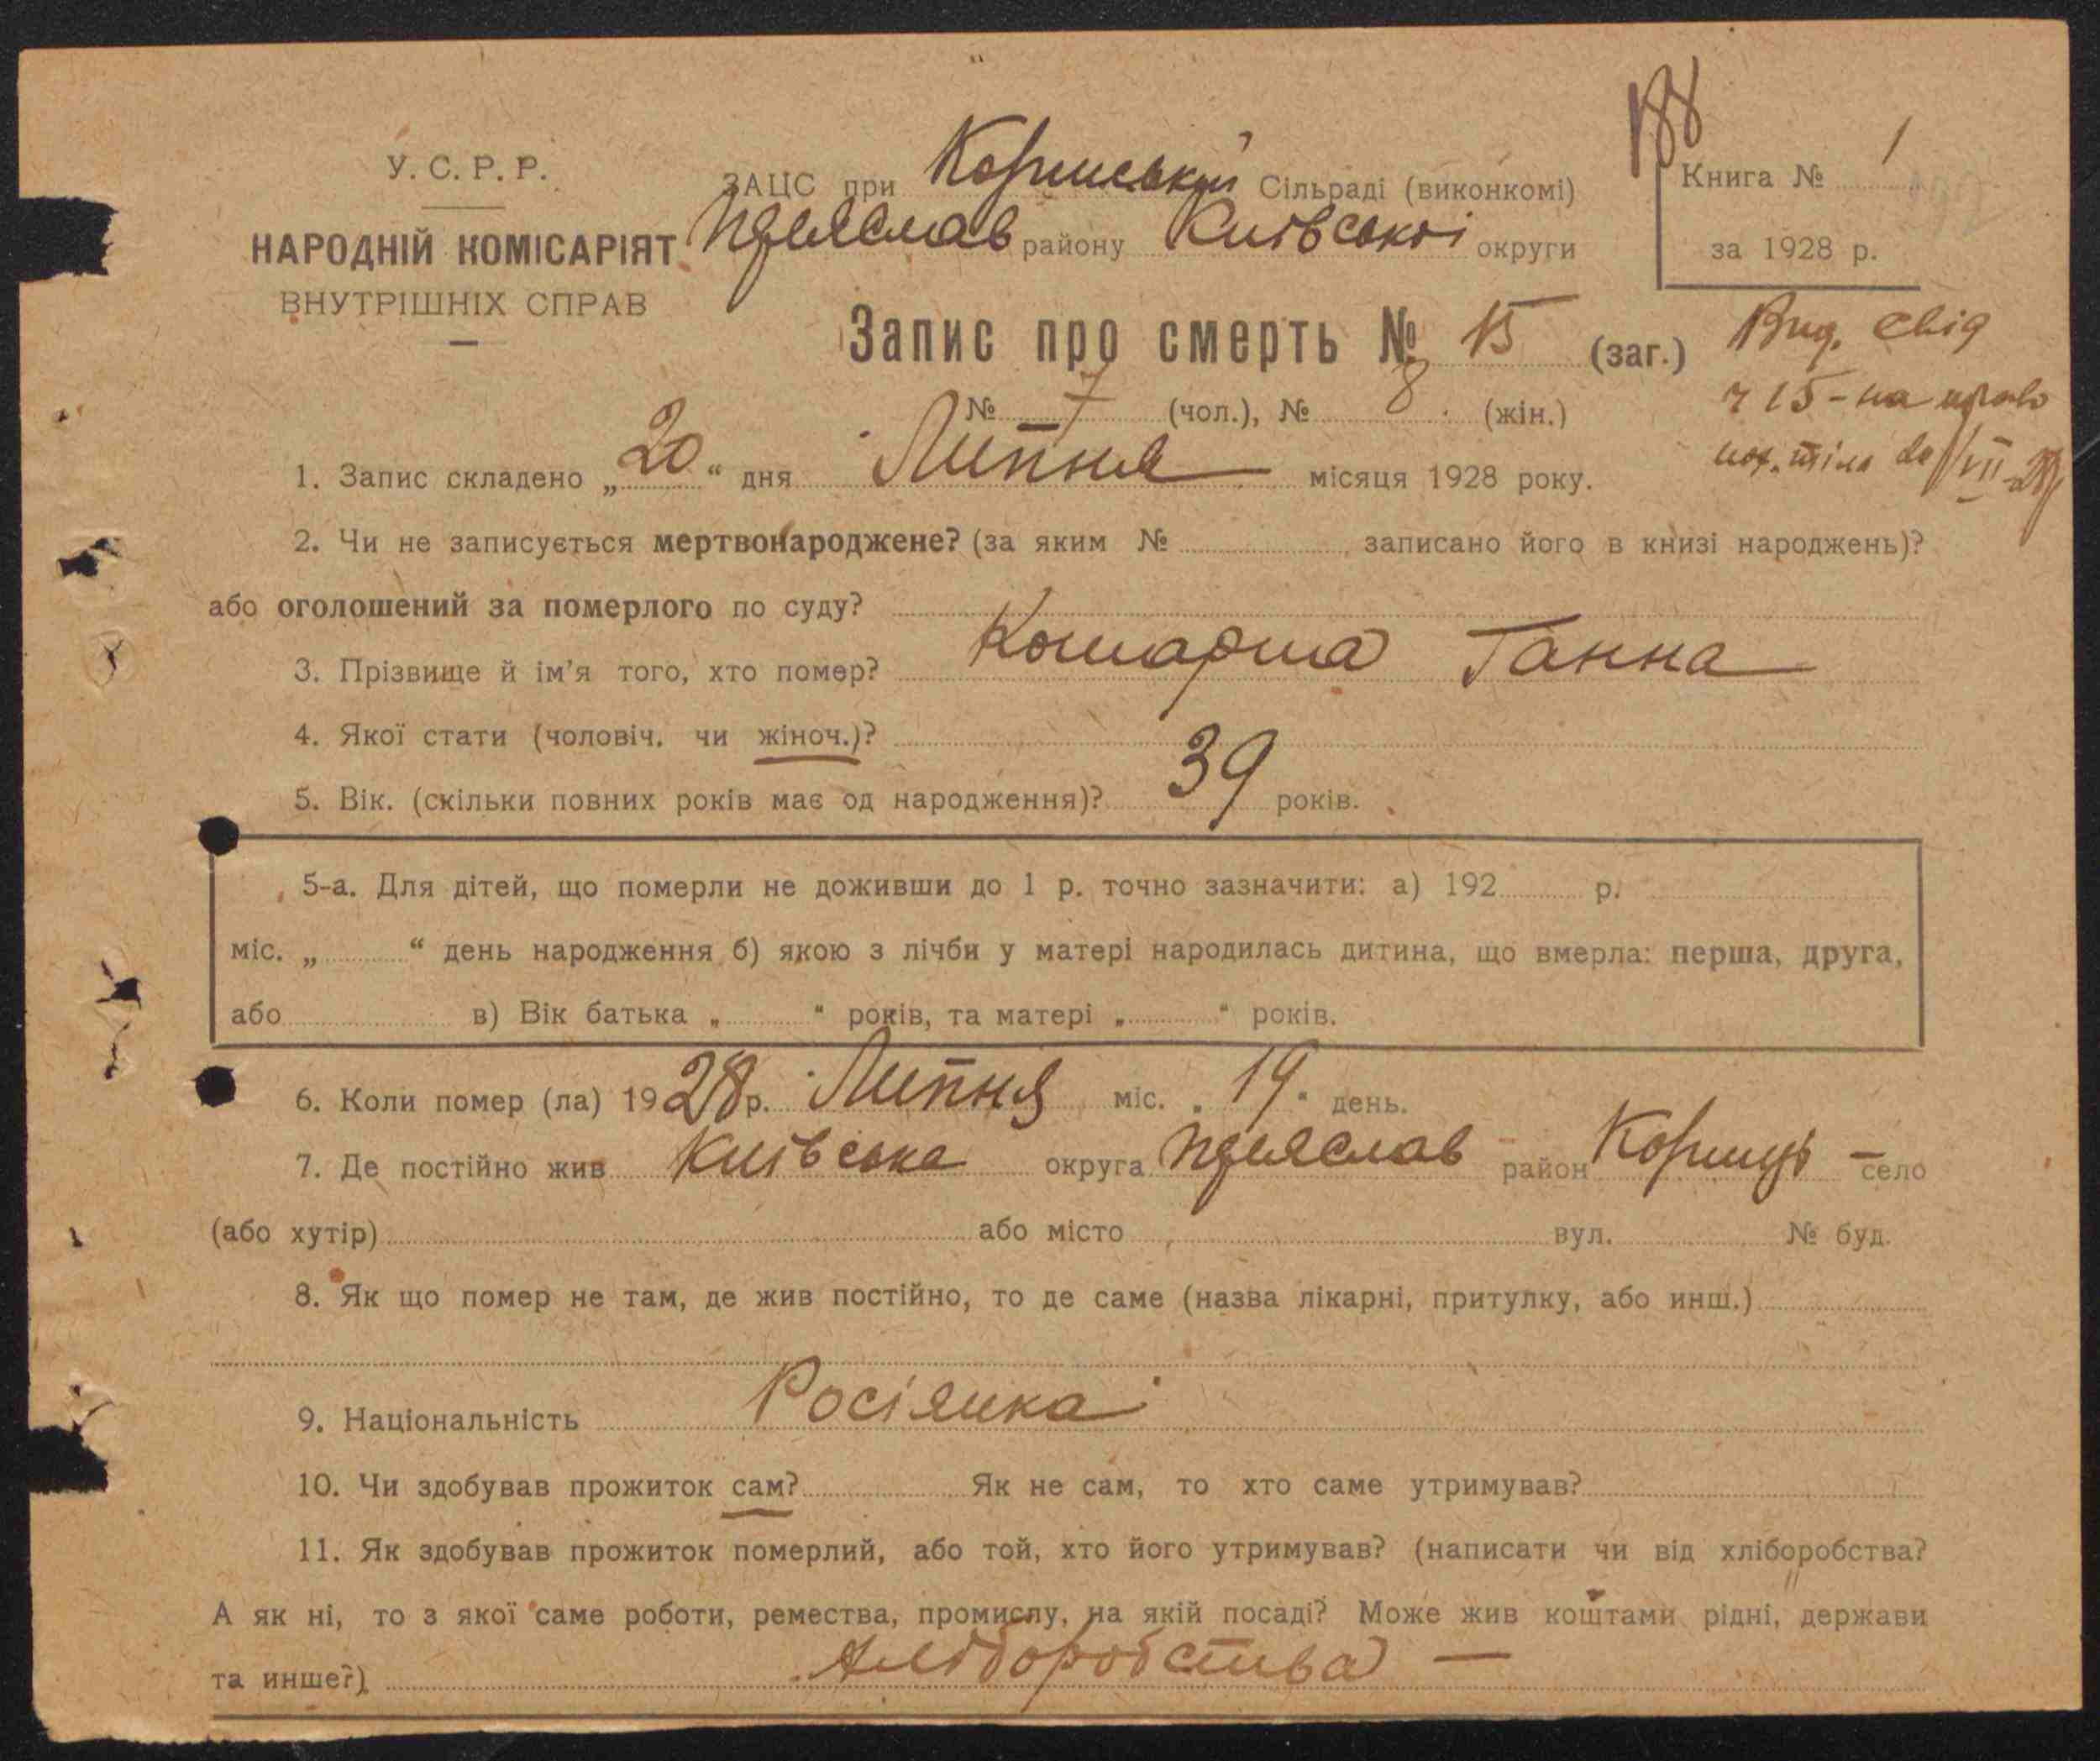 У. С. Р. Р.
НАРОДНІЙ КОМІСАРІЯТ
ВНУТРІШНІХ СПРАВ
ЗАЦС при Коринській Сільраді (виконкомі)
Переяслав району Київської округи
Книга № 1
за 1928 р.
Запис про смерть № 15 (заг.)
№ 7 (чол.), № 8 (жін.)
Вид. свід
ч 15 - на право
пох. тіла
1. Запис складено „20“ дня Липня місяця 1928 року.
2. Чи не записується мертвонароджене? (за яким № записано його в книзі народжень)?
або оголошений за померлого по суду?
3. Прізвище й ім’я того, хто помер? Ганна
4. Якої стати (чоловіч. чи жіноч.)?
5. Вік. (скільки повних років має од народження)? 39 років.
5-а. Для дітей, що померли не доживши до 1 р. точно зазначити: а) 192 р.
міс. „ “ день народження б) якою з лічби у матері народилась дитина, що вмерла: перша, друга,
або в) Вік батька „ “ років, та матері „ “ років.
6. Коли помер (ла) 1928 р. Липня міс. „19“ день.
7. Де постійно жив Київська округа Переяслав район село
(або хутір) або місто вул. № буд.
8. Як що помер не там, де жив постійно, то де саме (назва лікарні, притулку, або инш.)
9. Національність Росіянка
10. Чи здобував прожиток сам? Як не сам, то хто саме утримував?
11. Як здобував прожиток померлий, або той, хто його утримував? (написати чи від хліборобства?
А як ні, то з якої саме роботи, ремества, промислу, на якій посаді? Може жив коштами рідні, держави
та инше?) Хліборобства —